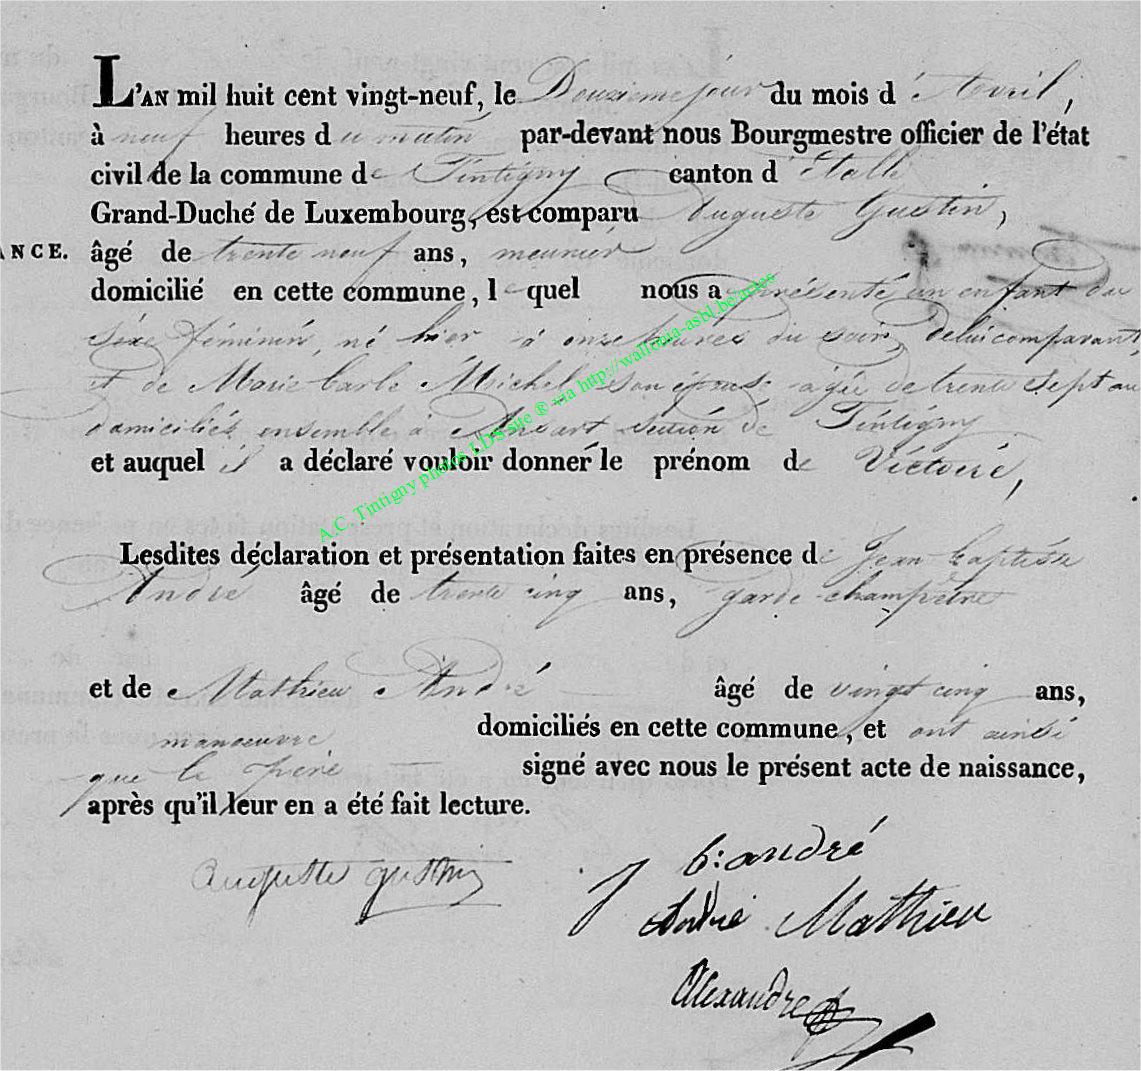 L'AN mil huit cent vingt-neuf, le Deuxieme jour du mois d'Avril,
à neuf heures du matin par-devant nous Bourgmestre officier de l'état
civil de la commune de Tintigny canton d'Etalle
Grand-Duché de Luxembourg, est comparu Auguste Gustin,
ANCE. âgé de trente neuf ans, meunier
domicilié en cette commune, lequel nous a présenté un enfant du
séxe féminin, né hier à onze heures du soir, de lui comparant,
et de Marie Michel son épouse agée de trente sept an
domiciliés ensemble à Ansart section de Tintigny
et auquel il a déclaré vouloir donner le prénom de Victoire,
Lesdites déclaration et présentation faites en présence de Jean baptiste
André âgé de trente cinq ans, garde champêtre
et de Mathieu André âgé de vingt cinq ans,
manoeuvre domiciliés en cette commune, et ont ainsi
que le père signé avec nous le présent acte de naissance,
après qu'il leur en a été fait lecture.
A.C. Tintigny photos LDS site ® via http://wallonia-asbl.be/actes
auguste gustin
J b: andré
André Mathieu
Alexandre